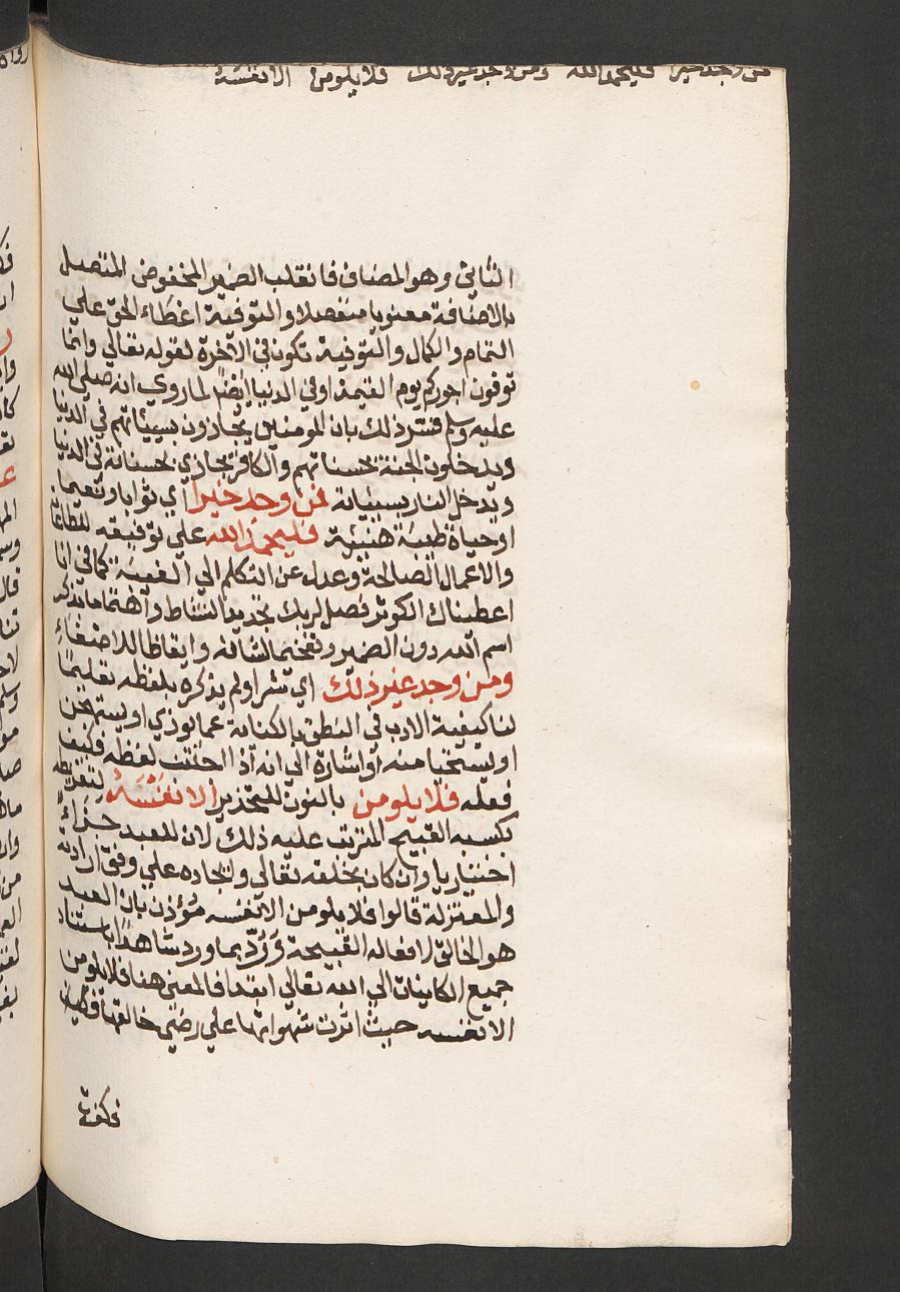 من وجد خيرا فليحمد الله ومن وجد غير ذلك فلا يلومن الا نفسه
الثاني وهو المضاف فانقلب الضمير المخفوض المتصل
بالاضافة معنويا منفصلا والتوفية اعطاء الحق علي
التمام والكمال والتوفية تكون في الآخرة لقوله تعالي وانما
توفون اجوركم يوم القيمة او في الدنيا ايضا لما روي انه صلي الله
عليه وسلم فسر ذلك بان المومنين يجازون بسيئاتهم في الدنيا
ويدخلون الجنة بحسناتهم والكافر يجازي بحسناته في الدنيا
ويدخل النار بسيئاته فمن وجد خيرا اي ثوابا ونعيما
او حياة طيبة هنيئة فليحمد الله علي توفيقه للطاعات
والاعمال الصالحة وعدل عن التكلم الي الغيبة كما في انا
اعطيناك الكوثر فصل لربك تجديدا لنشاط واهتماما بذكر
اسم الله دون الضمير وتفخيما لشانه وايقاظا للاصغاء
ومن وجد غير ذلك اي شرا ولم يذكره بلفظه تعليما
لنا كيفية الادب في النطق بالكناية عما يوذي او يستهجن
او يستحيا منه او اشارة الي انه اذا اجتنب لفظه فكيف
فعله فلا يلومن بالنون للتحذير الا نفسه لتفريطه
بكسبه القبيح المترتب عليه ذلك لان للعبد جزاء
اختياريا وان كان بخلقه تعالي وايجاده علي وفق ارادته
والمعتزلة قالوا فلا يلومن الا نفسه مؤذن بان العبد
هو الخالق لافعاله القبيحة ورد بما ورد شاهدا باستناد
جميع الكاينات الي الله تعالي ابتدا فالمعني هنا فلا يلومن
الا نفسه حيث اثرت شهواتها علي رضي خالقها
فكفرت